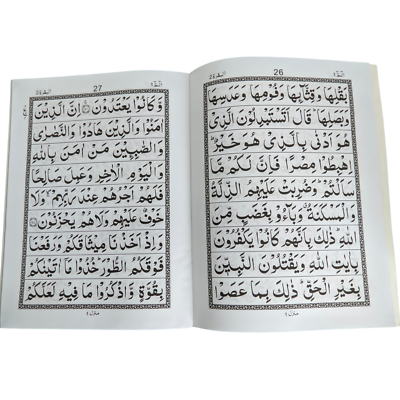 البقرة ٢
26
الٓمّٓ ١
بَقْلِهَا وَقِثَّآئِهَا وَفُوْمِهَا وَعَدَسِهَا
وَبَصَلِهَا ؕ قَالَ اَتَسْتَبْدِلُوْنَ الَّذِىْ
هُوَ اَدْنٰى بِالَّذِىْ هُوَ خَيْرٌ ؕ
اِهْبِطُوْا مِصْرًا فَاِنَّ لَكُمْ مَّا
سَاَلْتُمْ ؕ وَضُرِبَتْ عَلَيْهِمُ الذِّلَّةُ
وَالْمَسْكَنَةُ وَبَآءُوْ بِغَضَبٍ مِّنَ
اللّٰهِ ؕ ذٰلِكَ بِاَنَّهُمْ كَانُوْا يَكْفُرُوْنَ
بِاٰيٰتِ اللّٰهِ وَيَقْتُلُوْنَ النَّبِيّٖنَ
بِغَيْرِ الْحَقِّ ؕ ذٰلِكَ بِمَا عَصَوْا
منزل ١
البقرة ٢
27
الٓمّٓ ١
وَّكَانُوْا يَعْتَدُوْنَ ۟ اِنَّ الَّذِيْنَ
اٰمَنُوْا وَالَّذِيْنَ هَادُوْا وَالنَّصٰرٰى
وَالصّٰبِـِٕيْنَ مَنْ اٰمَنَ بِاللّٰهِ
وَالْيَوْمِ الْاٰخِرِ وَعَمِلَ صَالِحًا
فَلَهُمْ اَجْرُهُمْ عِنْدَ رَبِّهِمْ ۪ وَلَا
خَوْفٌ عَلَيْهِمْ وَلَا هُمْ يَحْزَنُوْنَ
وَاِذْ اَخَذْنَا مِيْثَاقَكُمْ وَرَفَعْنَا
فَوْقَكُمُ الطُّوْرَ ؕ خُذُوْا مَآ اٰتَيْنٰكُمْ
بِقُوَّةٍ وَّاذْكُرُوْا مَا فِيْهِ لَعَلَّكُمْ
منزل ١